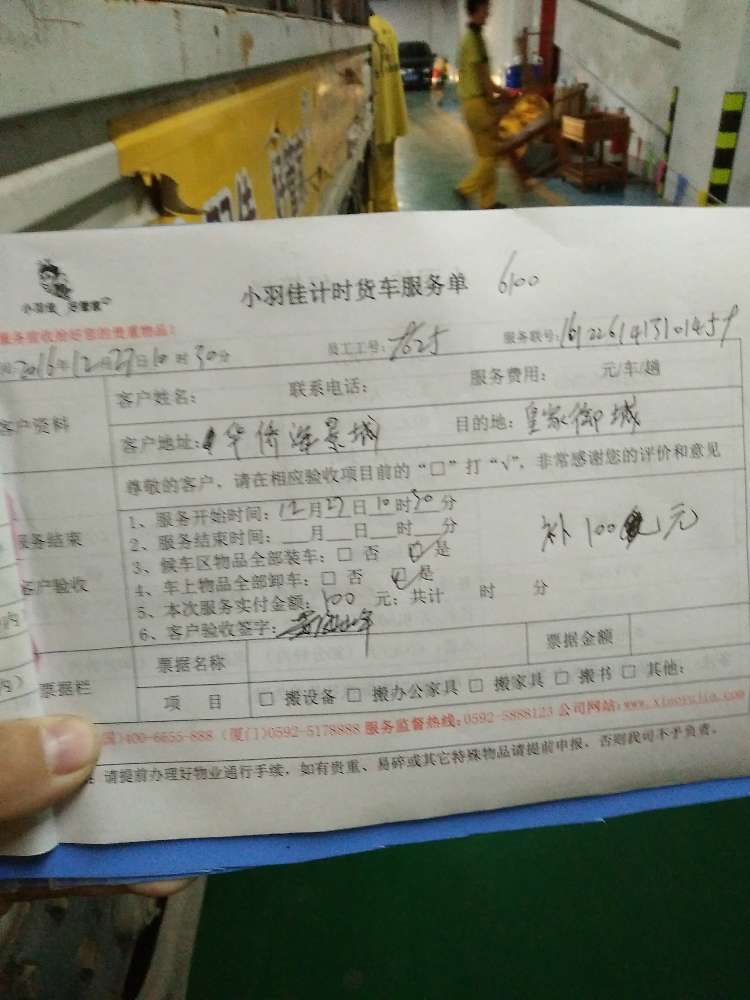 小羽佳 好管家
小羽佳计时货车服务单 6100
服务验收给好您的贵重物品!
间: 2016年12月27日10时30分 员工工号: 服务联号:
客户资料 客户姓名: 联系电话: 服务费用: 元/车/趟
客户地址: 华侨海景城 目的地: 皇家御城
尊敬的客户,请在相应验收项目前的“□”打“√”,非常感谢您的评价和意见
1、服务开始时间: 12月27日10时30分
服务结束 2、服务结束时间: 月 日 时 分 补100元
3、候车区物品全部装车: □ 否 □ 是
客户验收 4、车上物品全部卸车: □ 否 □ 是
5、本次服务实付金额: 100 元; 共计 时 分
6、客户验收签字:
票据栏 票据名称 票据金额
项 目 □ 搬设备 □ 搬办公家具 □ 搬家具 □ 搬书 □ 其他:
国)400-6655-888 (厦门)0592-5178888 服务监督热线:0592-5888123 公司网站:www.xiaoyujia.com
请提前办理好物业通行手续,如有贵重、易碎或其它特殊物品请提前申报,否则我司不予负责。